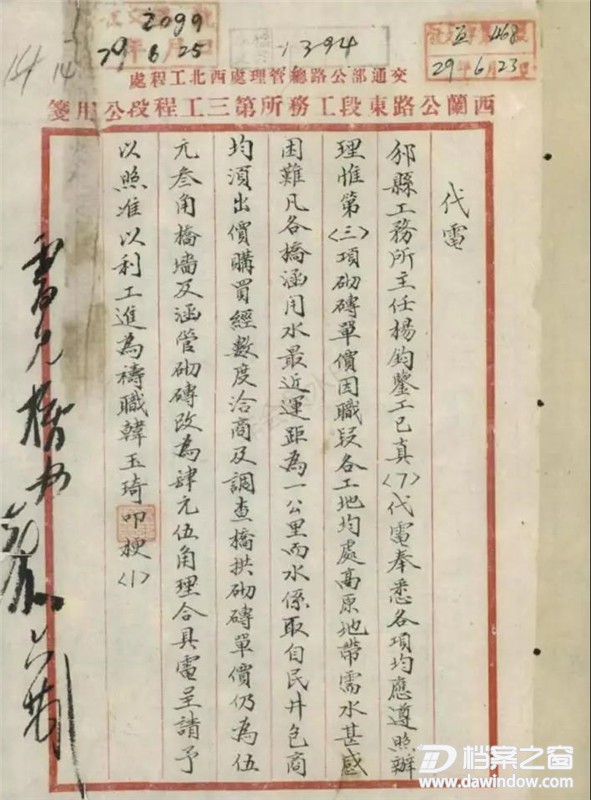 2099
29 6 25
1394
468
29年6月23
14
交通部公路總管理處西北工程處
西蘭公路東段工務所第三工程段公用箋
代電
邠縣工務所主任楊鈞鑒工巳真〈7〉代電奉悉各項均應遵照辦
理惟第〈三〉項砌磚單價因職段各工地均處高原地帶需水甚感
困難凡各橋涵用水最近運距為一公里而水係取自民井包商
均須出價購買經數度洽商及調查橋拱砌磚單價仍為伍
元叁角橋墻及涵管砌磚改為肆元伍角理合具電呈請予
以照准以利工進為禱職韓玉琦叩梗〈1〉
档案之窗
www.dawindow.com